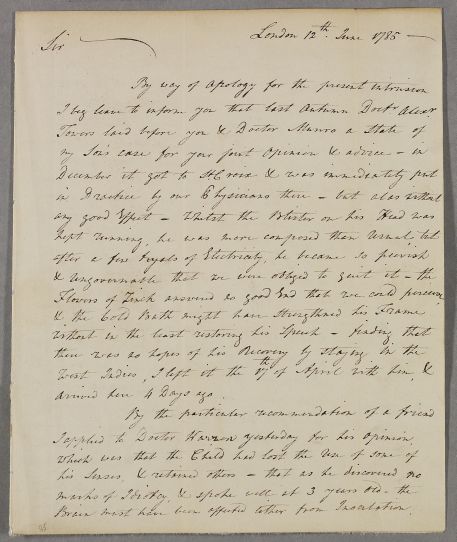 London 12th. June 1785
Sir
By way of Apology for the present intrusion
I beg leave to inform you that last Autumn Doctr. Alexr
Towers laid before you & Doctor Munro a State of
my Son's case for your joint Opinion & advice - in
December it got to St Croix & was immediately put
in Practice by our Physicians there - but alas without
any good Effect - Whilst the Blister on his Head was
kept running, he was more composed than Usual, but
after a few tryals of Electricity, he became so peevish
& ungovernable that we were obliged to quit it - the
Flowers of Zinck answered no good End that we could perceive
& the Cold Bath might have strengthned his Frame
without in the least restoring his Speech - finding that
there was no hopes of his Recovery by staying in the
West Indies, I left it the of April with him, &
arrived here 4 Days ago.
By the particular recommendation of a friend
I applied to Doctor yesterday for his Opinion,
which was that the Child had lost the use of some of
his Senses, & retained others - that as he discovered no
marks of Idiotcy, & spoke well at 3 years old - the
Brain must have been affected either from Inoculation,